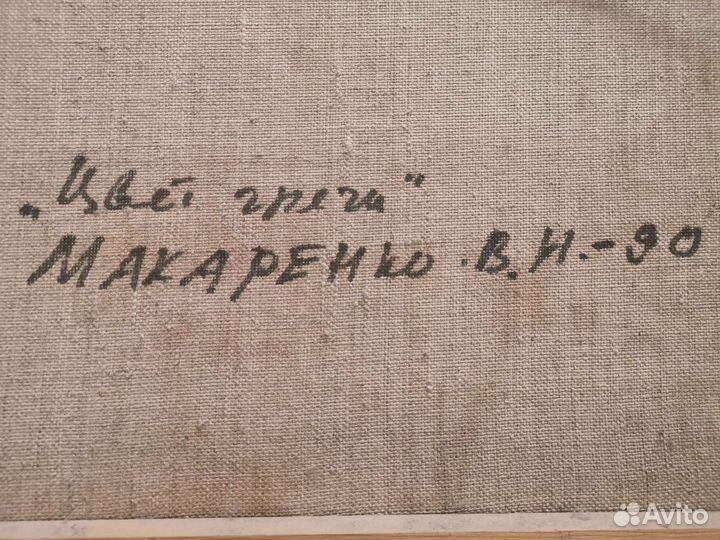 „Цвет гречи"
МАКАРЕНКО.В.Н.-90
Avito